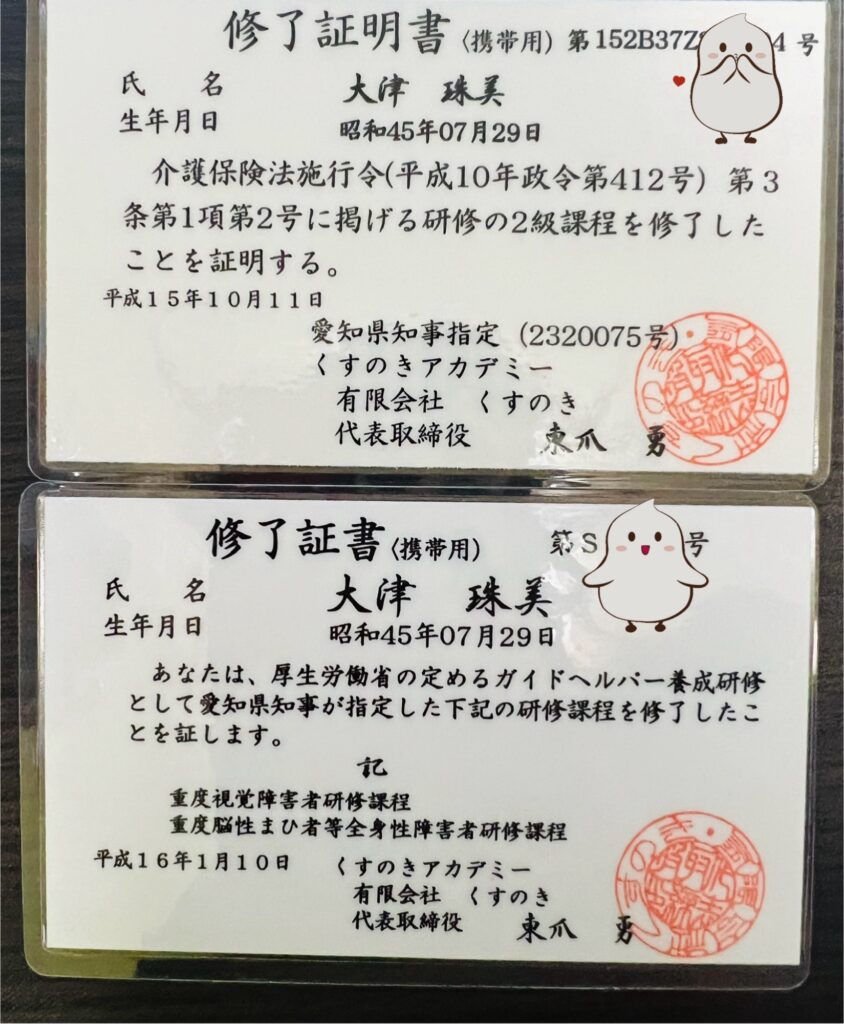 修了証明書〈携帯用〉 第152B37Z 4 号
氏 名 大津 珠美
生年月日 昭和45年07月29日
介護保険法施行令(平成10年政令第412号) 第3
条第1項第2号に掲げる研修の2級課程を修了した
ことを証明する。
平成15年10月11日
愛知県知事指定 (2320075号)
くすのきアカデミー
有限会社 くすのき
代表取締役 東爪 勇
修了証書〈携帯用〉 第S 号
氏 名 大津 珠美
生年月日 昭和45年07月29日
あなたは、厚生労働省の定めるガイドヘルパー養成研修
として愛知県知事が指定した下記の研修課程を修了したこ
とを証します。
記
重度視覚障害者研修課程
重度脳性まひ者等全身性障害者研修課程
平成16年1月10日 くすのきアカデミー
有限会社 くすのき
代表取締役 東爪 勇